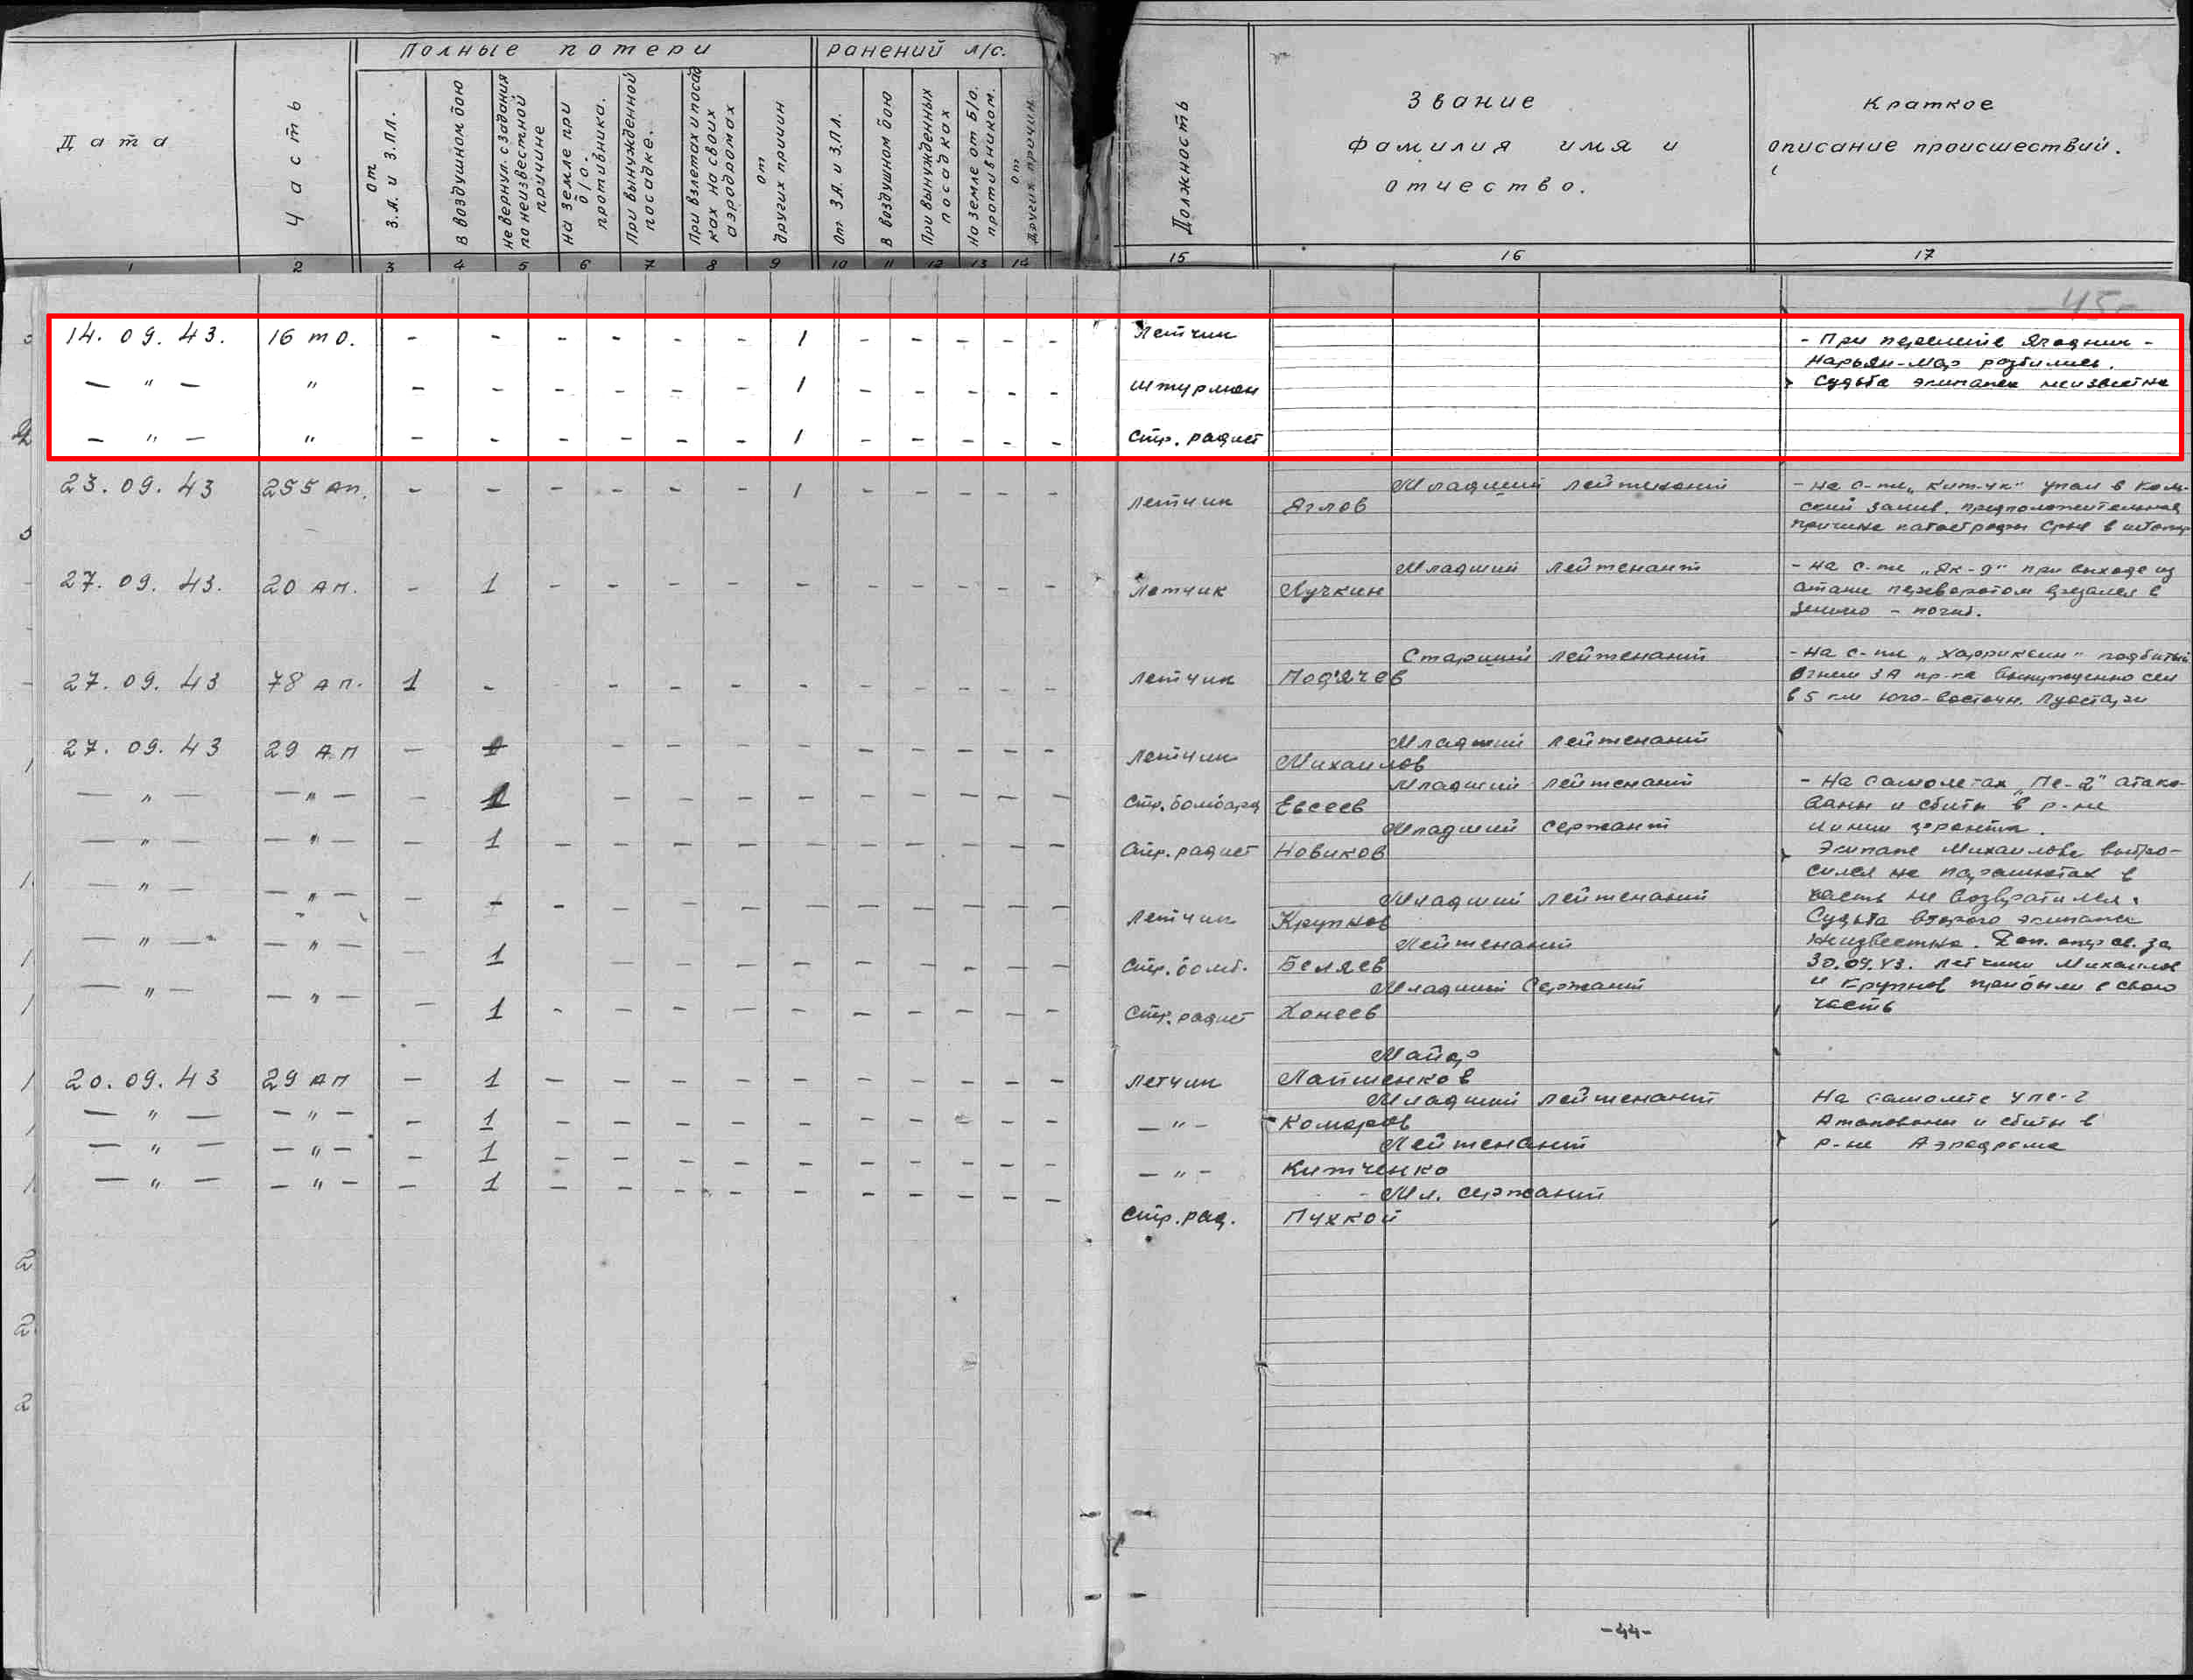 Полные потери
ранений л/с.
Дата
Часть
от З.А. и З.ПЛ.
В воздушном бою
Не вернул. с задания по неизвестной причине
На земле при б/о. противника.
При вынужденной посадке.
При взлетах и посадках на своих аэродромах
от других причин
От З.А. и З.ПЛ.
В воздушном бою
При вынужденных посадках
На земле от Б/о. противником.
От других причин
Должность
Звание
фамилия имя и
отчество.
Краткое
описание происшествий.
1 2 3 4 5 6 7 8 9 10 11 12 13 14 15 16 17
45
14. 09. 43. 16 то. - - - - - - 1 - - - - - Летчик - При перелете Ягодник -
Нарьян-Мар разбились.
— " — " - - - - - - 1 - - - - - штурман Судьба экипажа неизвестна
— " — " - - - - - - 1 - - - - - Стр. радист
23. 09. 43 255 АП. - - - - - - 1 - - - - - Младший лейтенант - На с-те „Китти-
Летчик Яглов упал в
залив. предположительная
причина катастрофы срыв в штопор
27. 09. 43. 20 АП. - 1 - - - - - - - - - - Младший лейтенант - На с-те „Як-9" при выходе из
Летчик Лучкин атаки переворотом врезался в
землю - погиб.
27. 09. 43 78 АП. 1 - - - - - - - - - - - Старший лейтенант - На с-те „Харрикейн" подбитый
Летчик Под'ячев огнем ЗА пр-ка вынужденно сел
в 5 км юго-восточн. Луостари
27. 09. 43 29 АП - 1 - - - - - - - - - Младший лейтенант
Летчик Михайлов
— " — — " — - 1 - - - - - - - - - Младший лейтенант - На самолетах „Пе-2" атако-
Стр. бомбард Евсеев ваны и сбиты в р-не
— " — — " — - 1 - - - - - - - - - - Младший сержант линии фронта.
Стр. радист Новиков Экипаж Михайлова выбро-
сился на парашютах в
— " — — " — - - - - - - - - - - - - Младший лейтенант часть не возвратился.
Летчик Крупнов Судьба второго экипажа
— " — — " — 1 - - - - - - - - - Лейтенант неизвестна. Доп. опер св. за
Стр. бомб. Беляев 30.09.43. летчики Михайлов
— " — — " — - 1 - - - - - - - - - - Младший Сержант и Крупнов прибыли в свою
Стр. радист Хонеев часть
Майор
20. 09. 43 29 АП - 1 - - - - - - - - - - Летчик Лапшенков
— " — — " — - 1 - - - - - - - - - - Младший лейтенант На самолете Упе-2
— " — Комаров Атакованы и сбиты в
— " — — " — - 1 - - - - - - - - - - Лейтенант р-не Аэродрома
— " — Китченко
— " — — " — - 1 - - - - - - - - - - Мл. сержант
Стр. рад. Пухкой
-44-